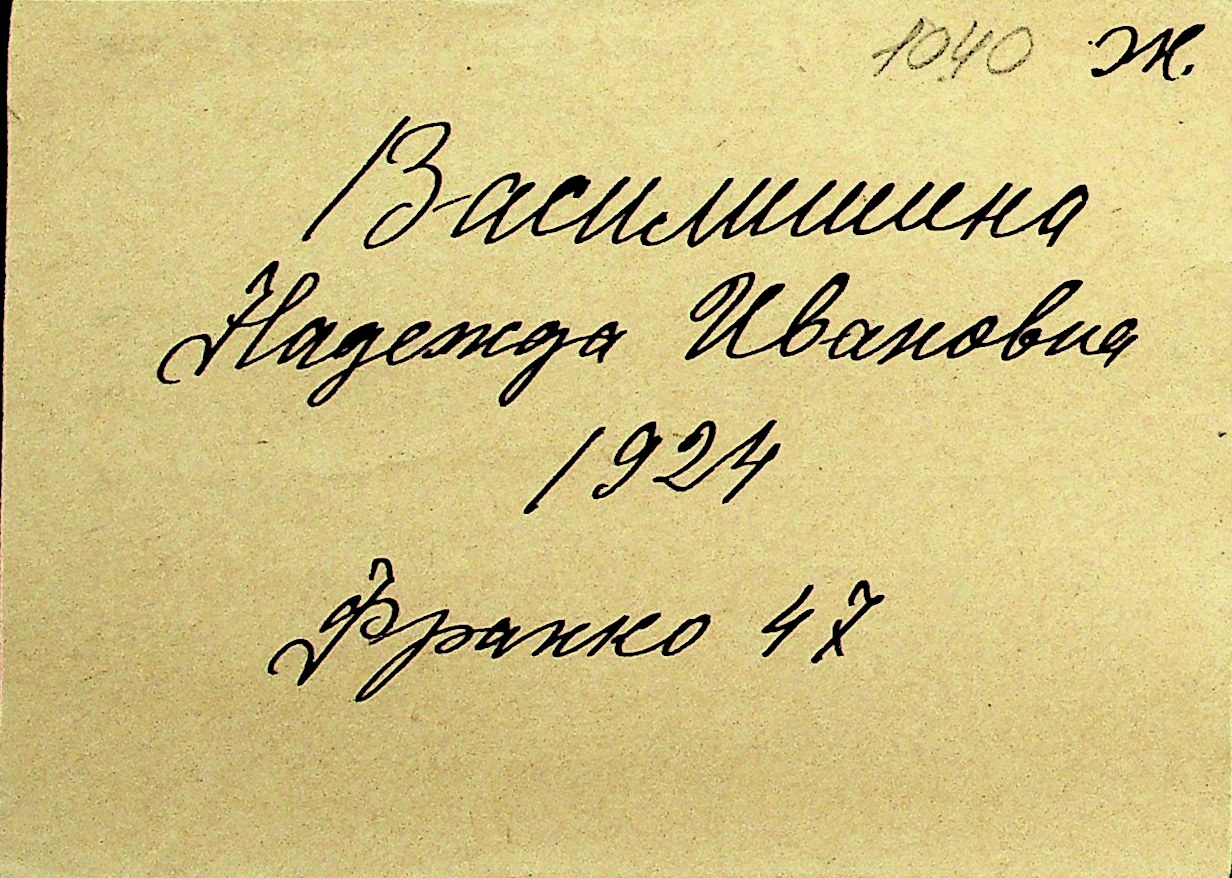 1040 ж.
Василишина
Надежда Ивановна
1924
Франко 47